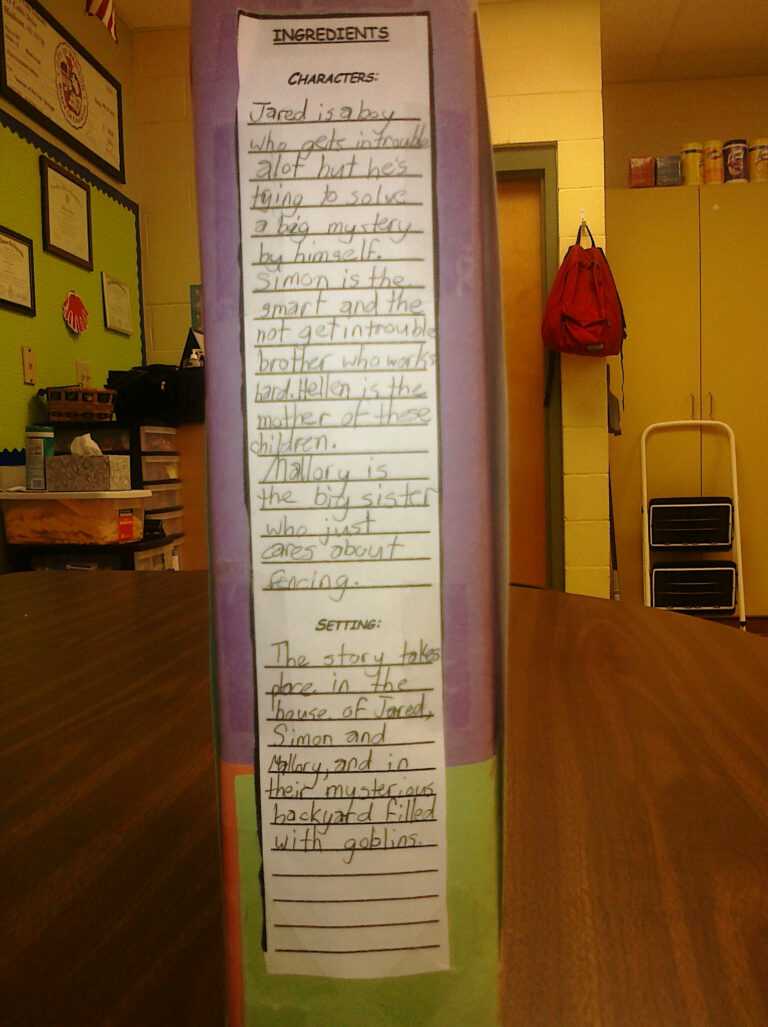 INGREDIENTS
CHARACTERS:
Jared is a boy
who gets in trouble
alot but he's
tying to solve
a big mystery
by himself.
Simon is the
smart and the
not get in trouble
brother who works
hard. Hellen is the
mother of these
children.
Mallory is
the big sister
who just
cares about
fencing.
SETTING:
The story takes
place in the
house of Jared,
Simon and
Mallory, and in
their mysterious
backyard filled
with goblins.